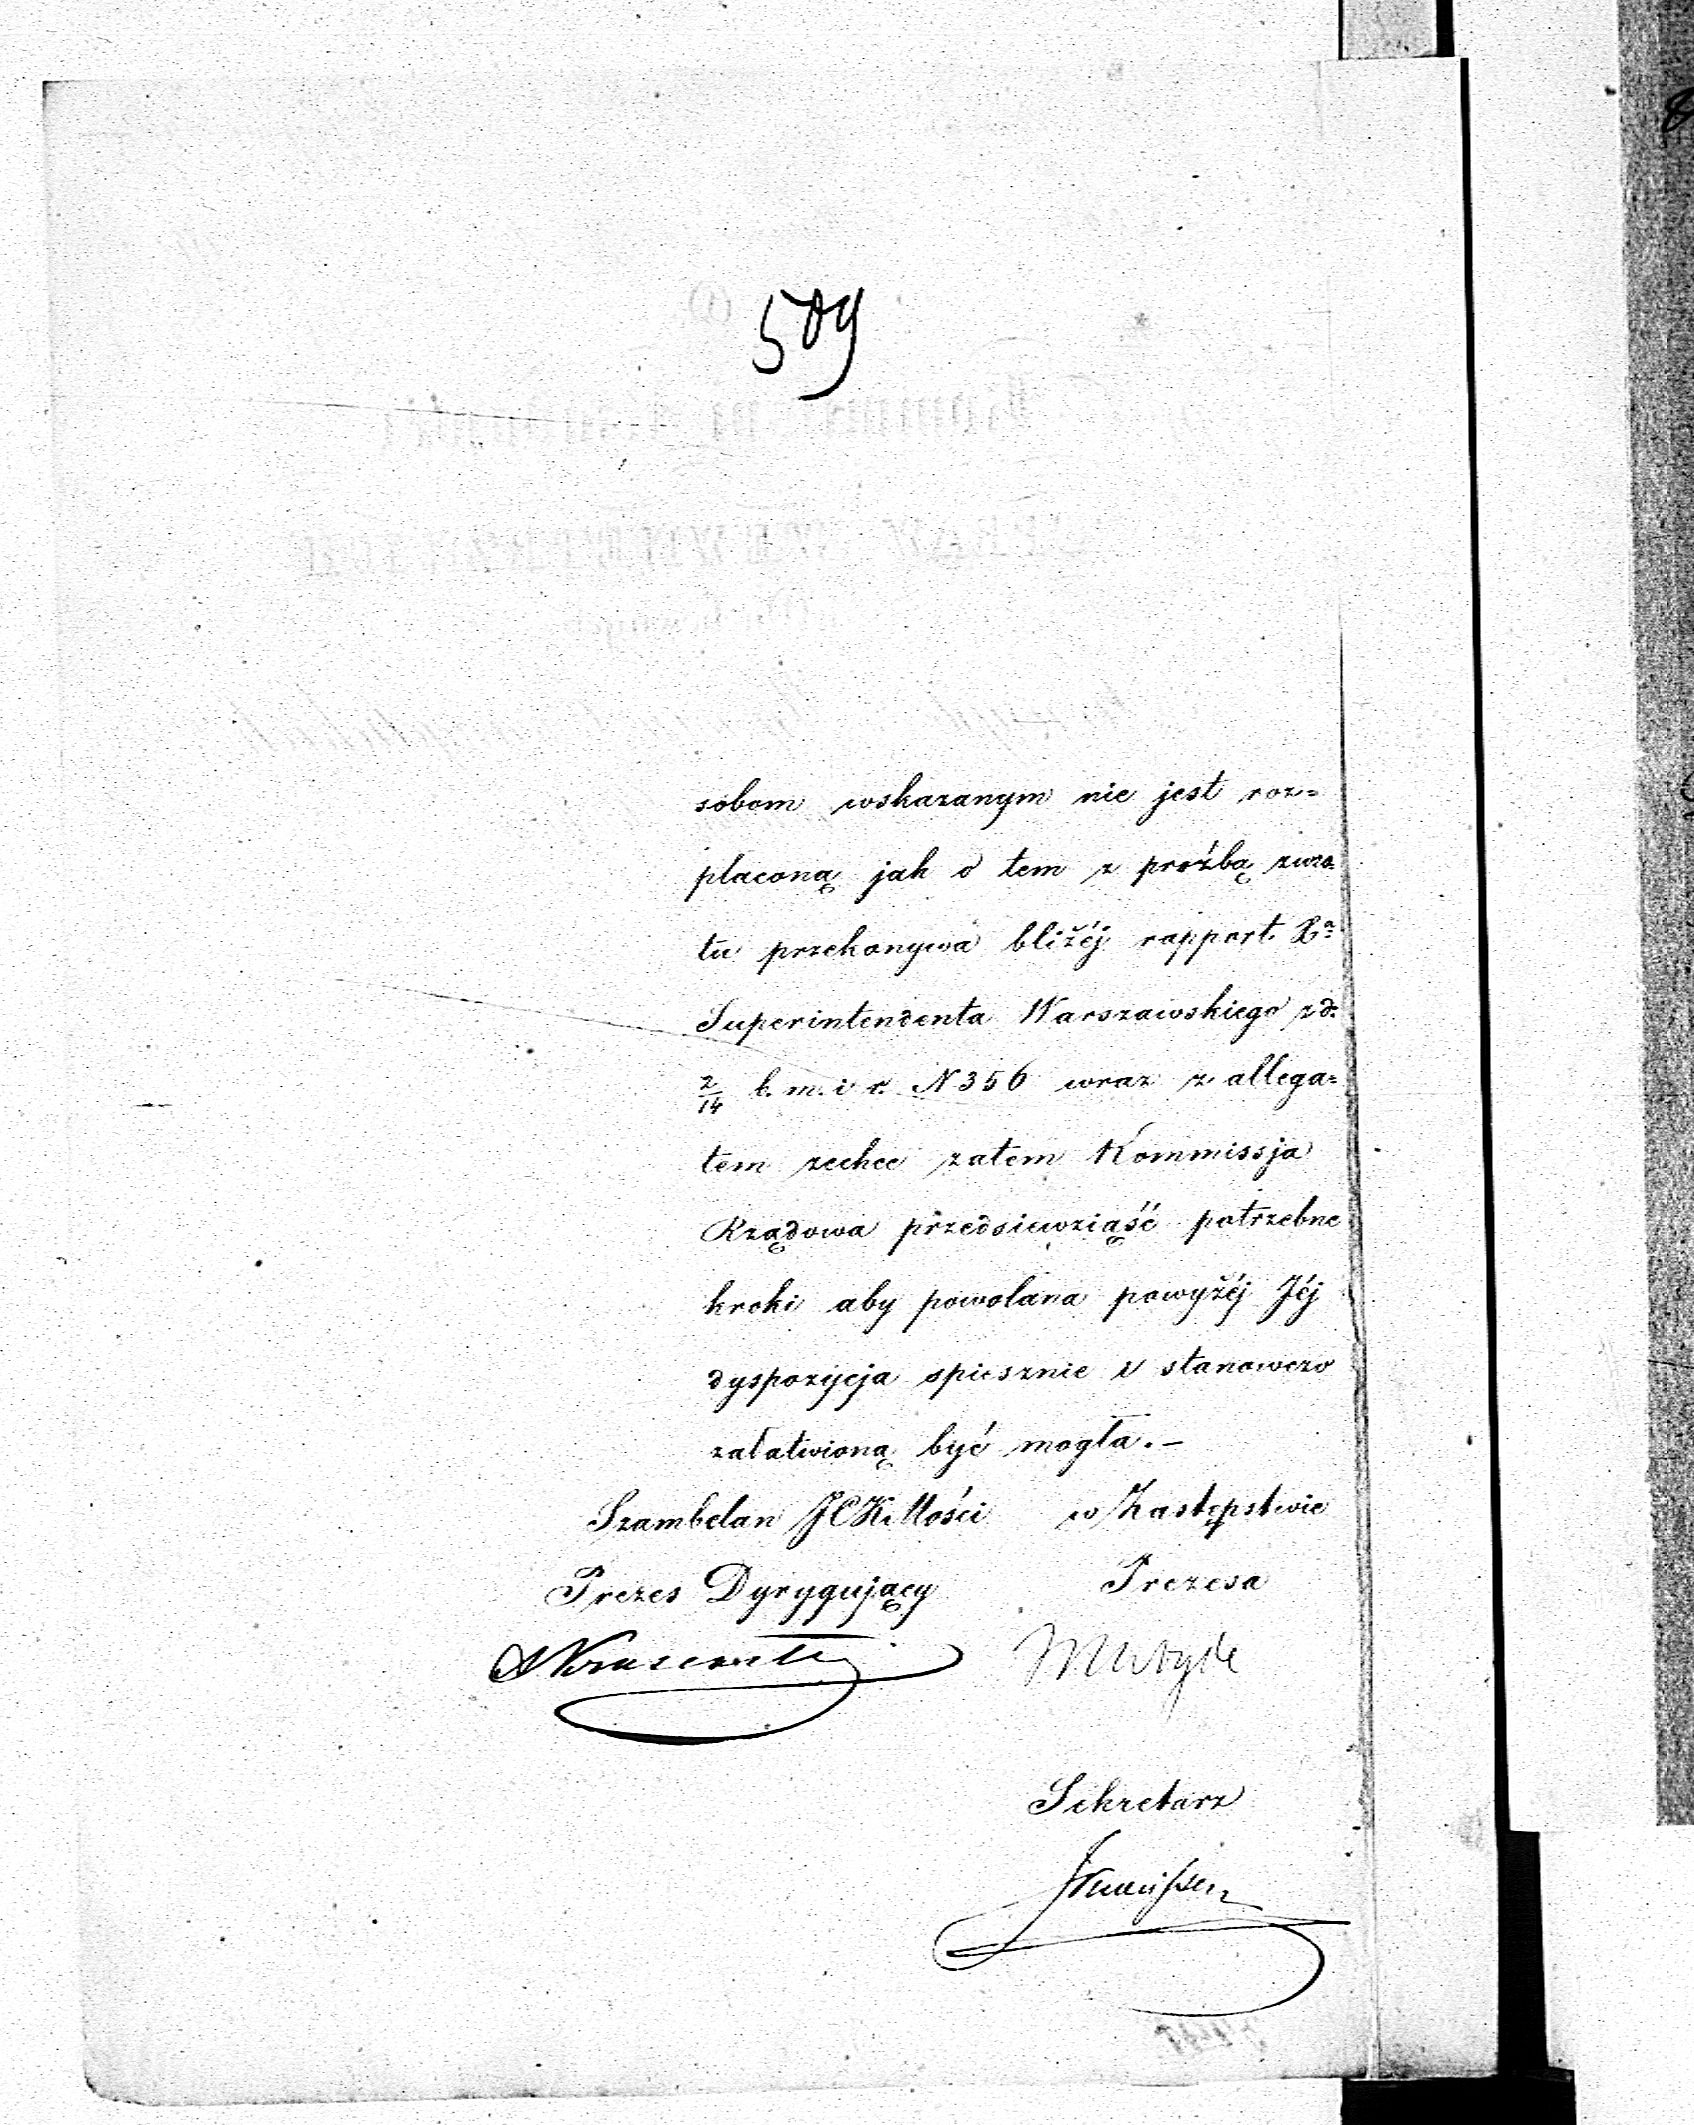 509
sobom wskazanym nie jest roz=
placoną jak o tem z proźbą zwro=
tu przekonywa bliżéj rapport Xa
Superintendenta Warszawskiego z d.
2/14 b. m. i r. N 356 wraz z allega=
tem zechce zatem Kommissja
Rządowa przedsiewziąść potrzebne
kroki aby powolana powyżéj Jéj
dyspozycja spiesznie i stanowczo
załatwioną być mogła. –
Szambelan JCK Mości w Zastępstwie
Prezes Dyrygujący Prezesa
Sekretarz